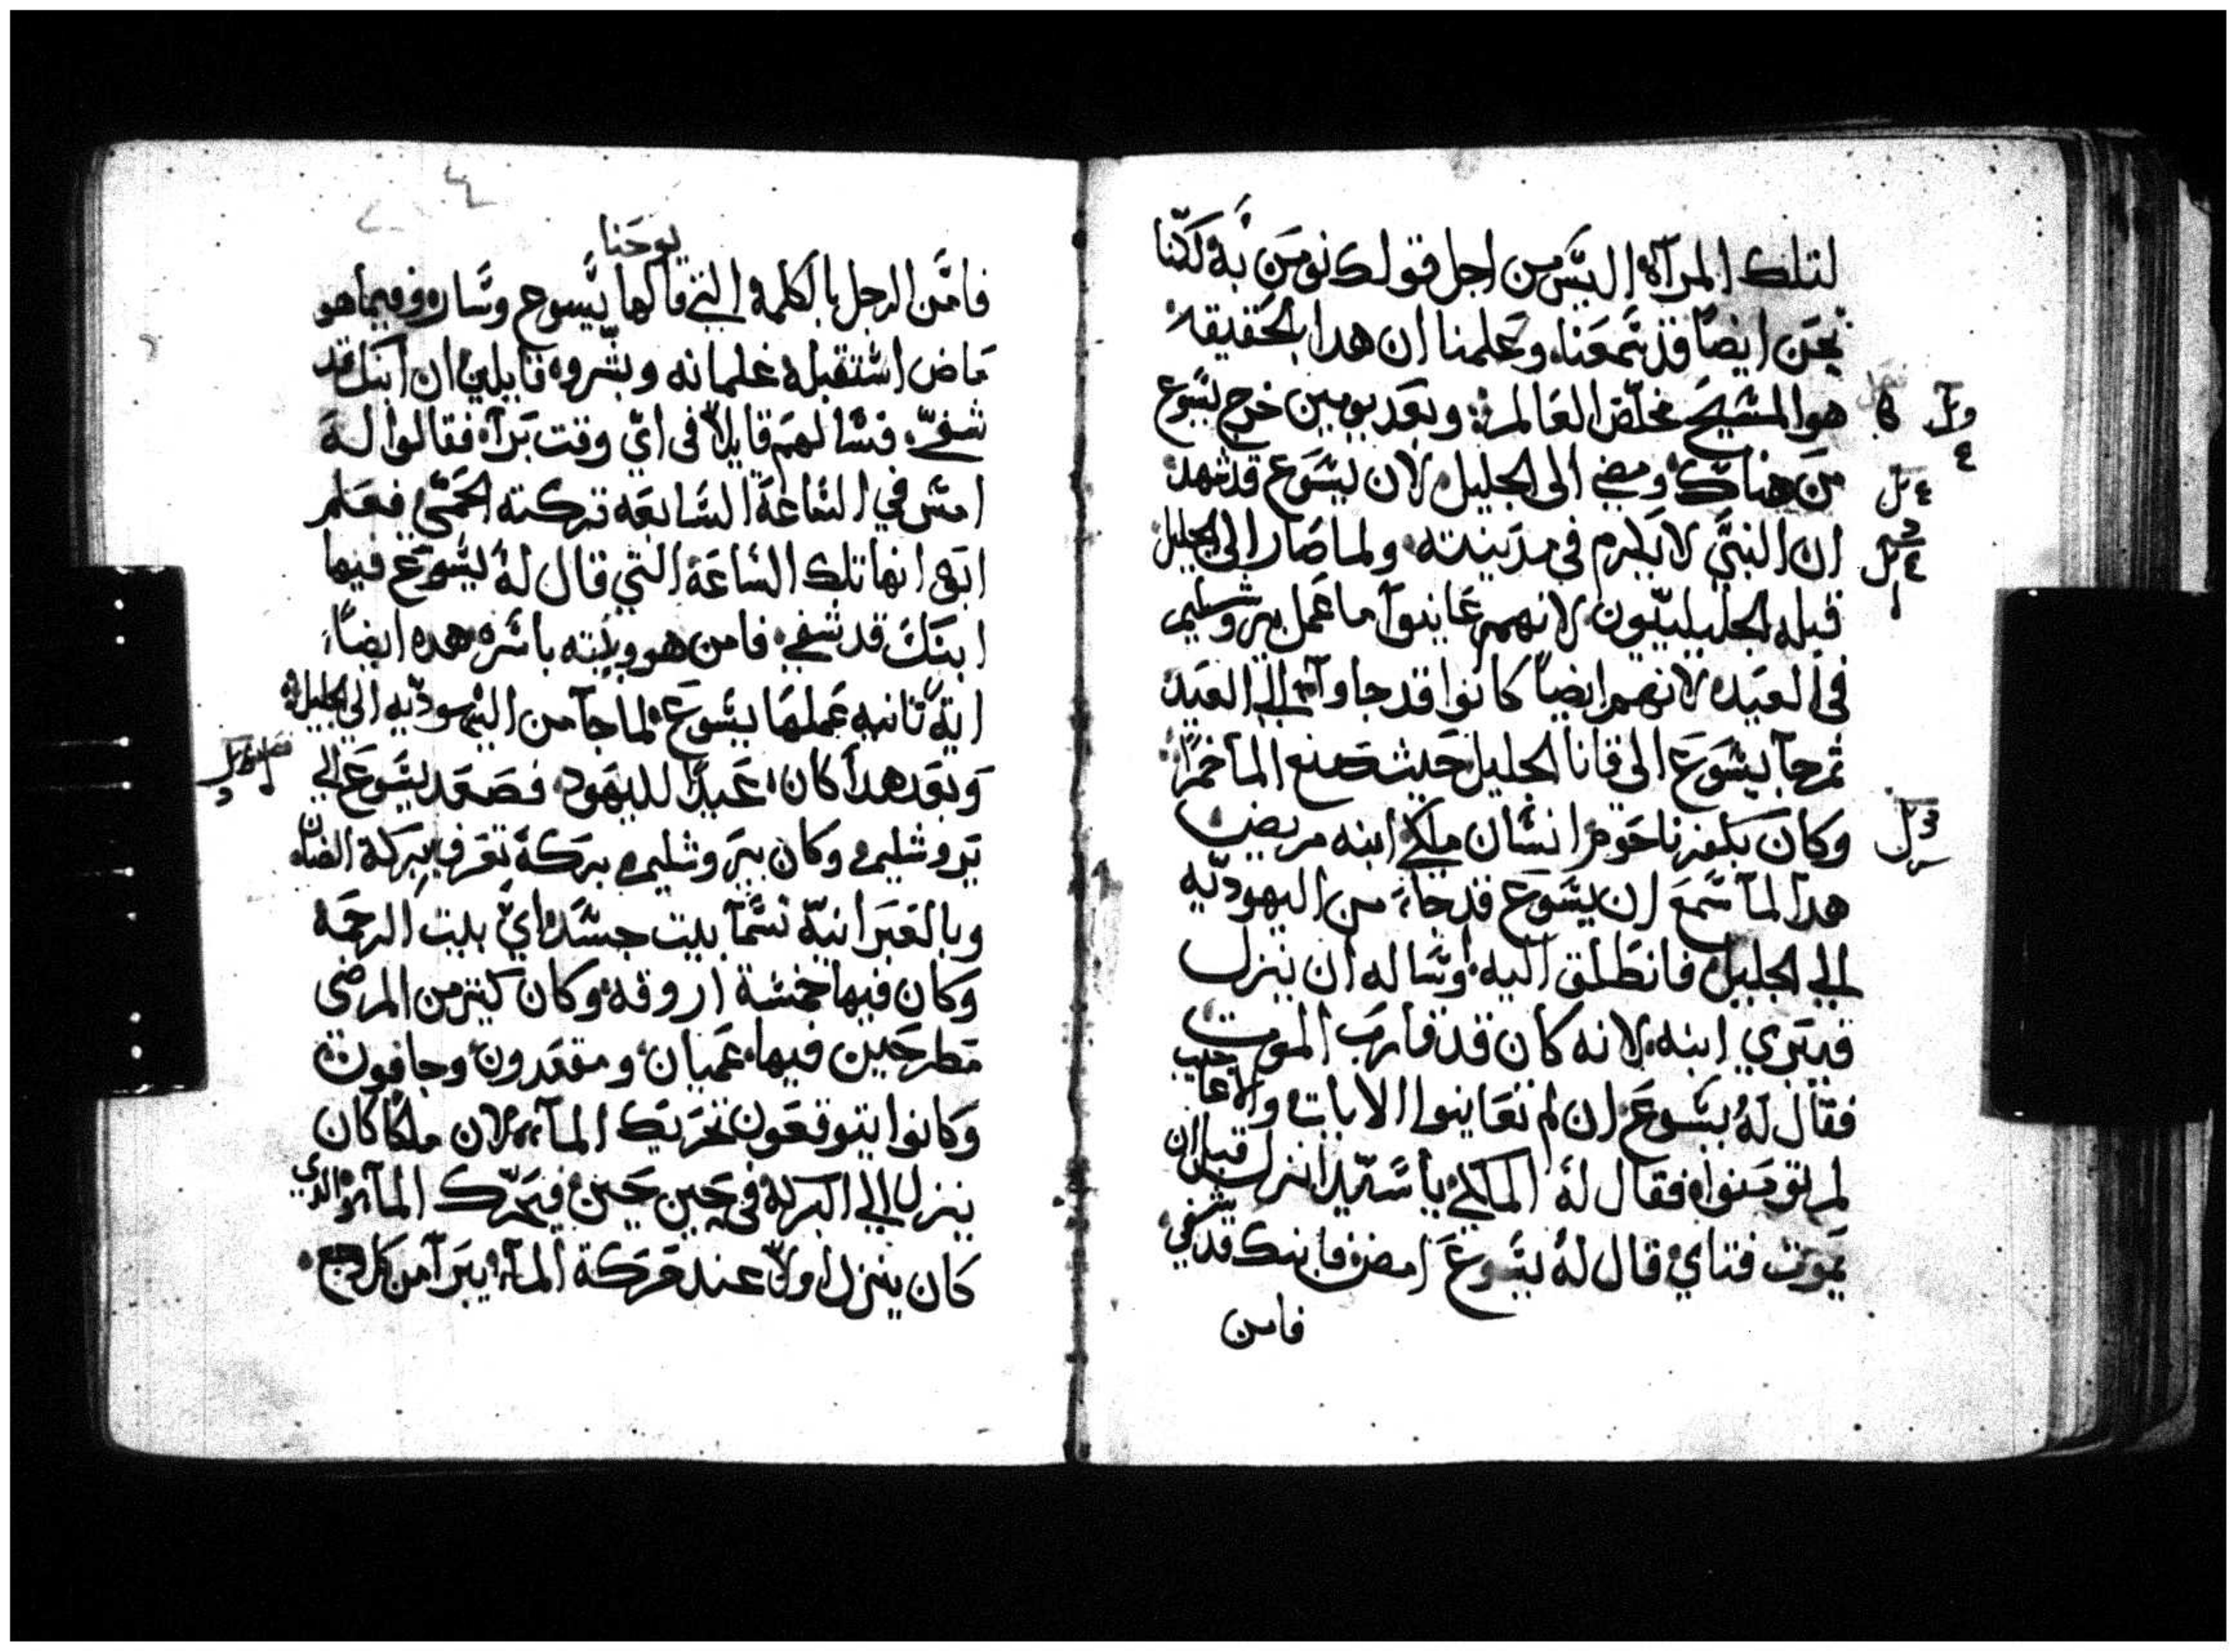 لتلك المرآة اليس من اجل قولك نومن به لكنا
نحن ايضاً قد سمعنا، وعلمنا ان هدا بالحقيقة
هوا المسيح مخلص العالم: وبعد يومين خرج يسوع
من هناك ومضي الى الجليل لان يسوع قد شهد
ان النبي لا يكرم في مدينته ولما صار الى الجليل
قبله الجليليون لانهم عاينوا ما عمل بيروشليم
في العيد لانهم ايضاً كانوا قد جاوآ الي العيد
ثم جآ يسوع الى قانا الجليل حيث صنع المآ خمراً
وكان بكفرناحوم انسان ملكي ابنه مريض
هدا لمآ سمع ان يسوع قد جآء من اليهوديه
الي الجليل فانطلق اليه وساله ان ينزل
فيبري ابنه لانه كان قد قارب الموت
فقال له يسوع ان لم تعاينوا الايات والاعاجيب
لم تومنوا فقال له الملكي يا سيد انزل قبل ان
يموت فتاي قال له يسوع امض فابنك قد شفي
فامن
يوحنا
فامن الرجل بالكلمة التي قالها يسوع وسار وفيما هو
ماض استقبله غلمانه وبشروه قايلين ان ابنك قد
شفي فسالهم قايلاً في اي وقت برآ فقالوا له
امس في الساعة السابعه تركته الحمي فعلم
ابوه انها تلك الساعة التي قال له يسوع فيها
ابنك قد شفي فامن هو وبيته باسره هده ايضاً
اية تانيه عملها يسوع لما جآ من اليهوديه الي الجليل
وبعد هدا كان عيداً لليهود فصعد يسوع الي
يروشليم وكان بيروشليم بركة تعرف ببركة الضان
وبالعبرانية تسمآ بيت حسدا اي بيت الرحمة
وكان فيها خمسة اروقة وكان كثير من المرضى
مطرحين فيها عميان ومقعدون وجافون
وكانوا يتوقعون تحريك المآء لان ملكاً كان
ينزل الي البركة في حين حين فيحرك المآء والدي
كان ينزل اولاً عند حركة المآء يبرآ من كل وجع